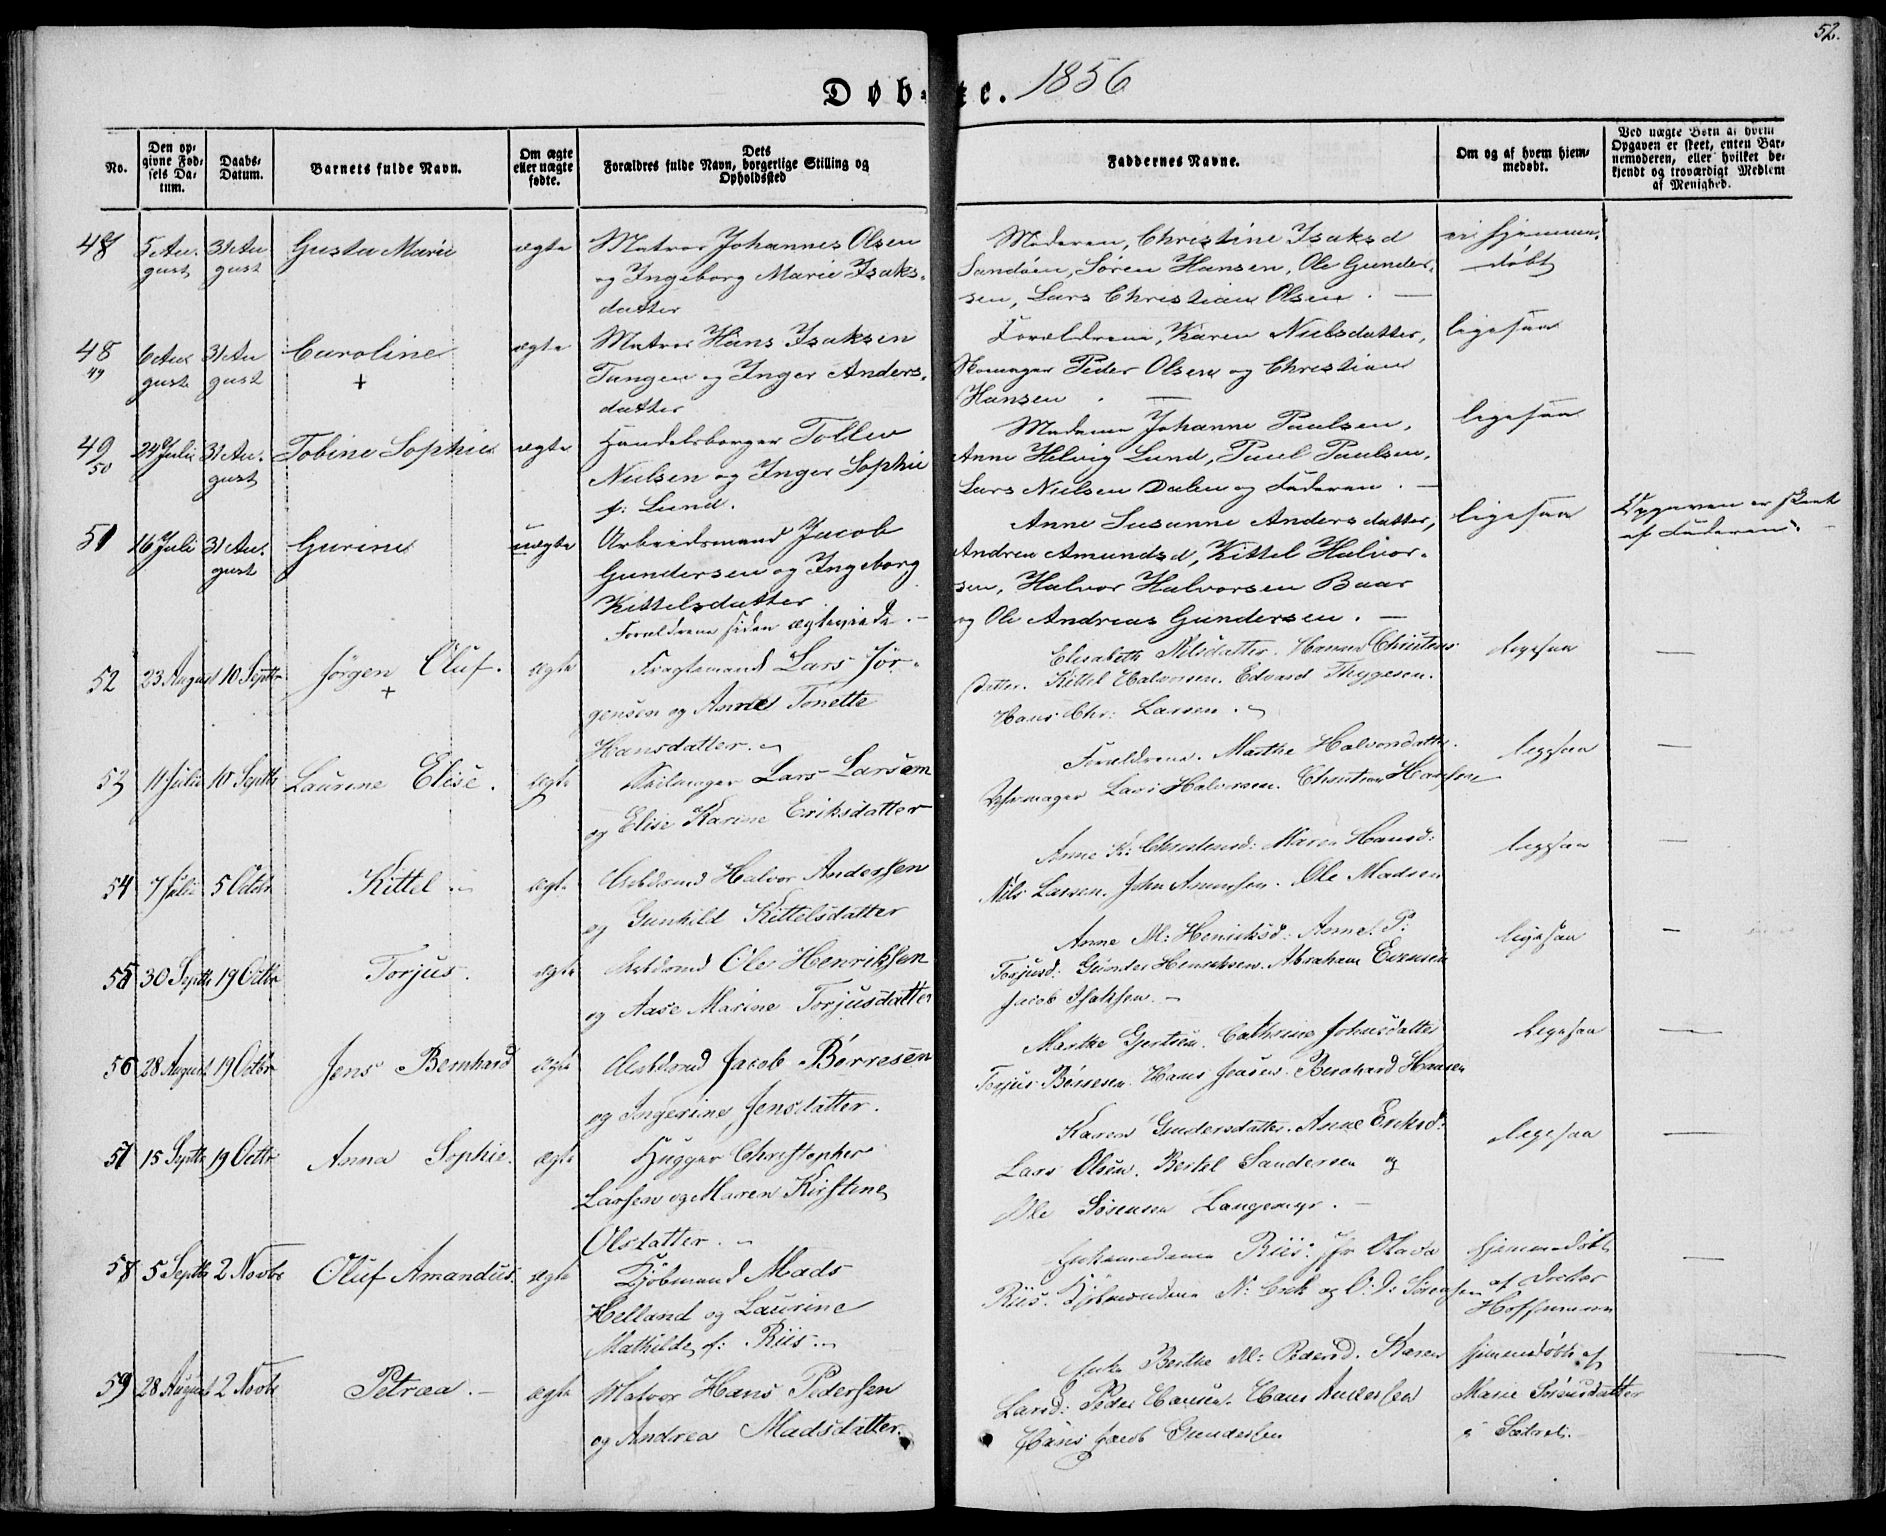 52.
Døbte. 1856
No.
Den op-
givne Fød-
sels Da-
tum.
Daabs-
Datum.
Barnets fulde Navn.
Om ægte
eller uægte
fødte.
Dets
Forældres fulde Navn, borgerlige Stilling og
Opholdssted
Faddernes Navne.
Om og af hvem hjem-
medøbt.
Ved uægte Børn af hvem
Opgaven er skeet, enten Bar-
nemoderen, eller hvilket be-
kjendt og troværdigt Medlem
af Menighed.
48 5 Au- 31 Au Gusta Marie ægte Matros Johannes Olsen Moderen, Christine Isaksd ei hjemme-
gust gust og Ingeborg Marie Isaks- Sandøen, Søren Hansen, Ole Gunder- døbt
datter sen, Lars Christian Olsen.
48 6 Au 31 Au Caroline ægte Matros Hans Isaksen Forældrene, Karen Nielsdatter, ligesaa
49 gust gust + Tangen og Inger Anders- Skomager Peder Olsen og Christian
datter Hansen.
49 24 Juli 31 Au. Tobine Sophie ægte Handelsborger Tollev Madame Johanne Paulsen, ligesaa
50 gust Nielsen og Inger Sophie Anne Helvig Lund, Paul Paulsen,
f: Lund. Lars Nielsen Dalen og Faderen.
51 16 Juli 31 Au. Gurine uægte Arbeidsmand Jacob Anne Susanne Andersdatter, ligesaa Opgaven er skeet
gust Gundersen og Ingeborg Andrea Amundsd, Kittel Halvor- af Faderen.
Kittelsdatter sen, Halvor Halvorsen Baar
Forældrene siden ægteviede. og Ole Andreas Gundersen.
52 23 August 10 Septbr Jørgen Oluf. ægte Fragtemand Lars Jør- Elisabeth Nilsdatter. Hanna Christens ligesaa
+ gensen og Anne Tonette datter. Kittel Halvorsen. Edvard Thygesen.
Hansdatter. Hans Chr: Larsen.
53 11 Juli 10 Septbr Laurine Elise. ægte Seilmager Lars Larsen Forældrene. Marthe Halvorsdatter. ligesaa
og Elise Karine Eriksdatter Lars Halvorsen. Christian Hansen
54 7 Juli 5 Octbr Kittel ægte Arbdsmd Halvor Anderssen Anne K: Christensd: Maren Hansd: ligesaa
og Gunhild Kittelsdatter Nils Larsen. John Amundsen. Ole Madsen
55 30 Septbr 19 Octbr Torjus. ægte Arbdsmd Ole Henrikssen Anne M: Henriksd: Anne P: ligesaa
og Aase Marine Torjusdatter Torjusd: Gunder Henriksen. Abraham Evensen
Jacob Isaksen.
56 28 August 19 Octbr Jens Bernhard ægte Arbdsmd Jacob Børresen Marthe Gjertsen. Cathrine Johnsdatter ligesaa
og Ingerine Jensdatter. Torjus Børresen. Hans Jensen. Bernhard Hansen
57 15 Septbr 19 Octbr Anna Sophie. ægte Hugger Christopher Karen Gundersdatter. Anne Eriksd: ligesaa
Larsen og Maren Kirstine Lars Olsen. Bertel Sandersen og
Olsdatter. Ole Sørensen Langemyr.
58 5 Septbr 2 Novbr Oluf Amandus. ægte Kjøbmand Mads Enkemadame Riis. Jfr Olava hjemmedøbt
Helland og Laurine Riis. Kjøbmændene N: Eek og O: D: Sørensen af Doctor
Mathilde f: Riis. Hoffmann
59 28 August 2 Novbr Petræa. ægte Matros Hans Pedersen Enke Berthe M: Pedersd. Karen hjemmedøbt af
og Andrea Madsdatter. Larsd: Peder Hansen. Hans Anderssen Marie Sørensdatter
Hans Jacob Gundersen